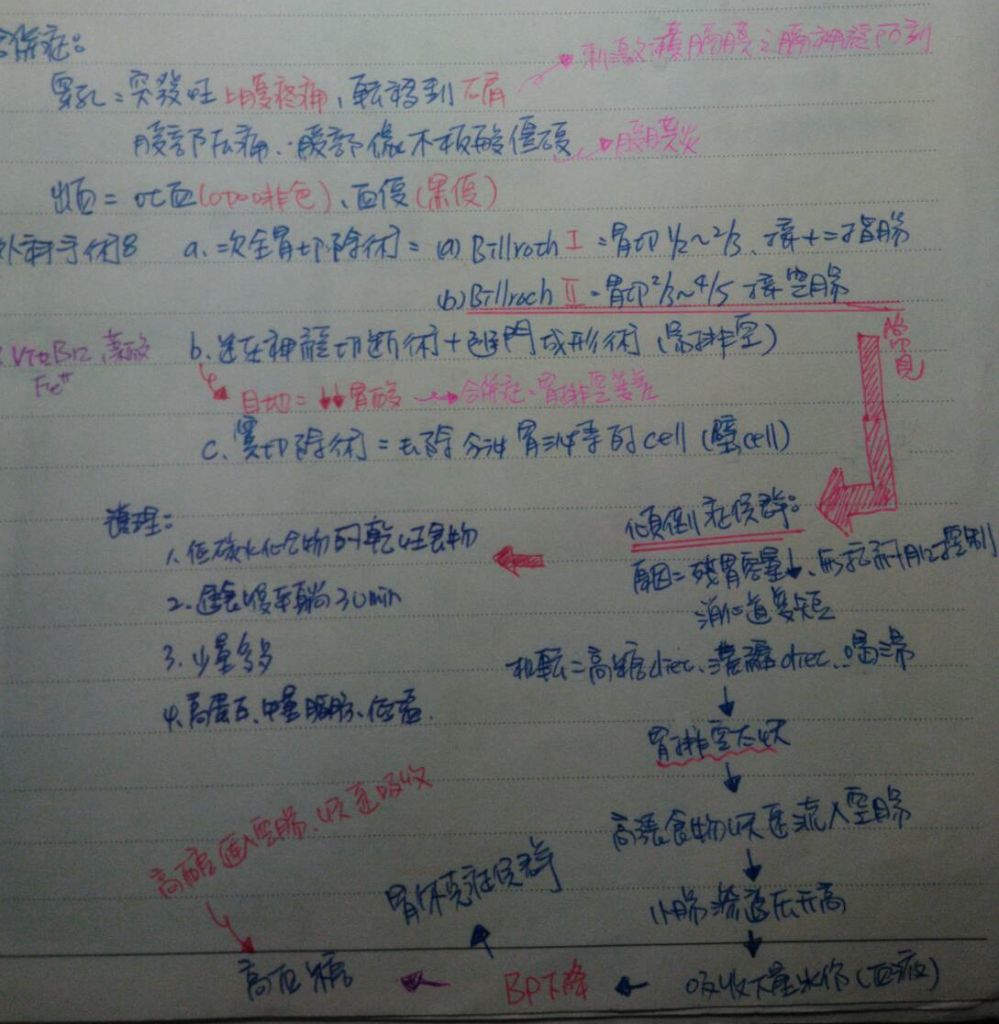 合併症：
刺激橫膈膜之膈神經所到
穿孔：突發性上腹疼痛、轉移到右肩
腹部壓痛、腹部像木板般僵硬 腹膜炎
出血＝吐血(coco啡色)、血便(黑便)
外科手術：
a. 次全胃切除術＝(a) Billroth I：胃切1/2~2/3、接十二指腸
(b) Billroch II：胃切2/3~4/5 接空腸
常見
VitB12、葉酸
Fe++
b. 迷走神經切斷術+幽門成形術(易排空)
目地＝↓↓胃酸→合併症：胃排空變差
c. 竇切除術＝去除分泌胃泌素的cell (壁cell)
護理：
1. 低碳水化合物的乾性食物
2. 進食後平躺30min
3. 少量多多
4. 高蛋白、中量脂肪、低
傾倒症候群：
原因＝殘胃容量↓、無法耐用口控制
消化道變短
機轉＝高糖diet、濃diet、喝湯
↓
胃排空太快
↓
高張食物快速流入空腸
↓
小腸滲透壓升高
↓
吸收大量水份(血液)
←
BP下降
←
高血糖
高糖進入空腸、快速吸收
胃症候群